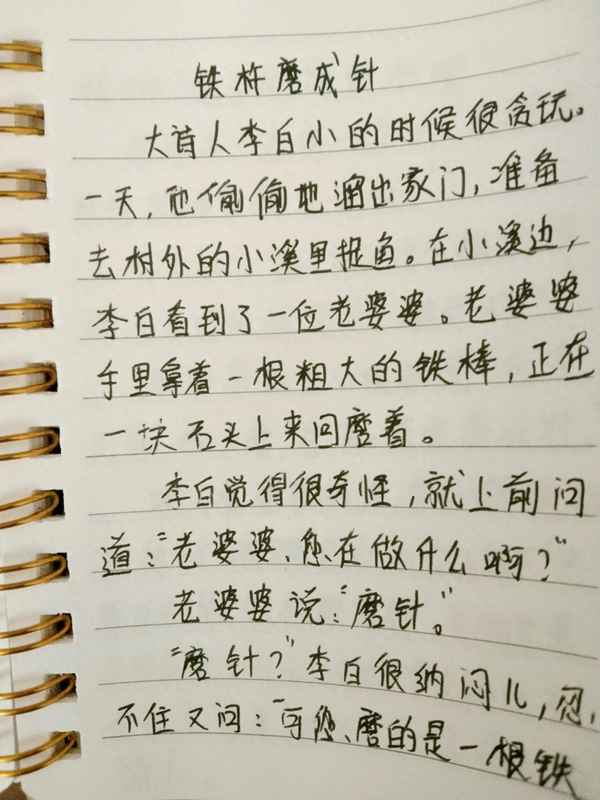 铁杵磨成针
大诗人李白小的时候很贪玩。
一天，他偷偷地溜出家门，准备
去村外的小溪里捉鱼。在小溪边，
李白看到了一位老婆婆。老婆婆
手里拿着一根粗大的铁棒，正在
一块石头上来回磨着。
李白觉得很奇怪，就上前问
道：“老婆婆、您在做什么啊？”
老婆婆说：“磨针。”
“磨针？”李白很纳闷儿，忍
不住又问：“可您、磨的是一根铁